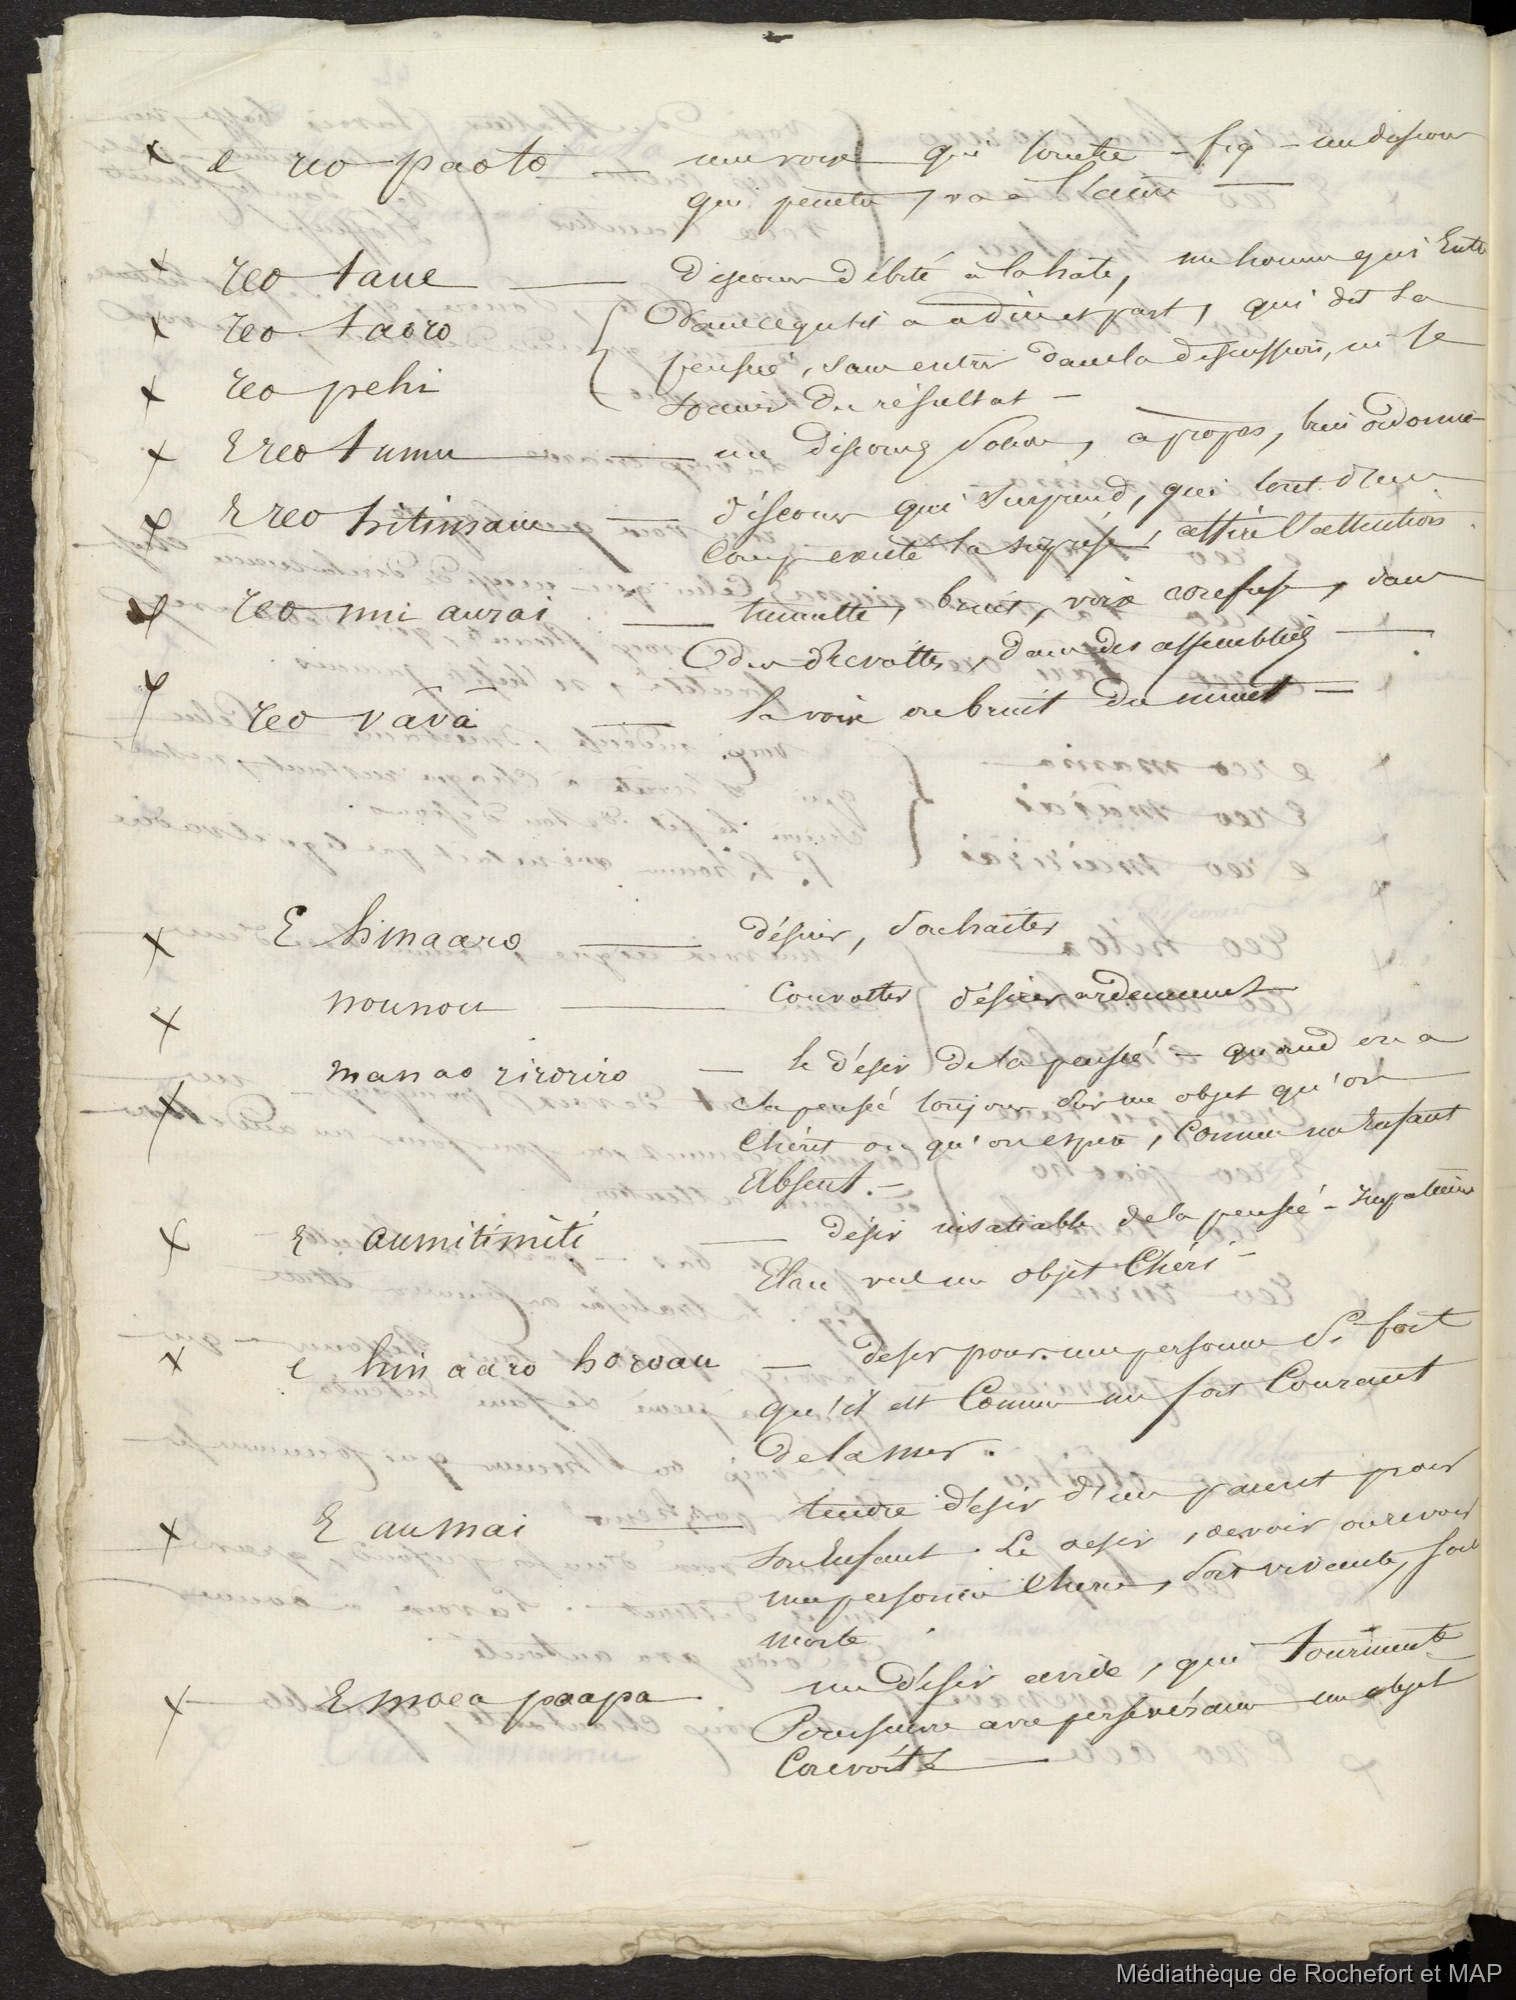 e reo paoto — une voix qui touche - fig - un discours
qui penetre, va à l'ame —
reo taue — discours débité à la hate, un homme qui Entre
reo taoro dans ce qu'il a à dire et part, qui dit sa
reo pehi pensée, sans entrer dans la discussion, ni se
soucier du résultat -
E reo tumu — un discours solide, apropos, bien ordonné
E reo hitimaue — discours qui surprend, qui tout d'un
coup excite la surprise, attire l'attention.
reo mi aurai — tumulte, bruit, voix confuse, dans
des revoltes, dans des assemblées —
reo vāvā — la voix ou bruit du muet —
E hinaaro — désirer, souhaiter
nounou — Convoiter désirer ardemment
manao riroriro — le désir de la pensée - quand on a
sa pensée toujours sur un objet qu'on
Chérit ou qu'on espere, comme un Enfant
Absent. -
E aumitimiti — désir insatiable de la pensée - Impatience
Elan vers un objet Chéri -
e hin aaro horoau — desir pour une personne si fort
qu'il est Comme un fort Courant
de la mer.
E aumai — tendre désir d'un parent pour
son Enfant. Le desir, de voir ou revoir
une personne Cherie, soit vivante, soit
morte.
E moea paapa un désir avide, qui tourmente
Poursuivre avec perseverance un objet
Convoité —
Médiathèque de Rochefort et MAP